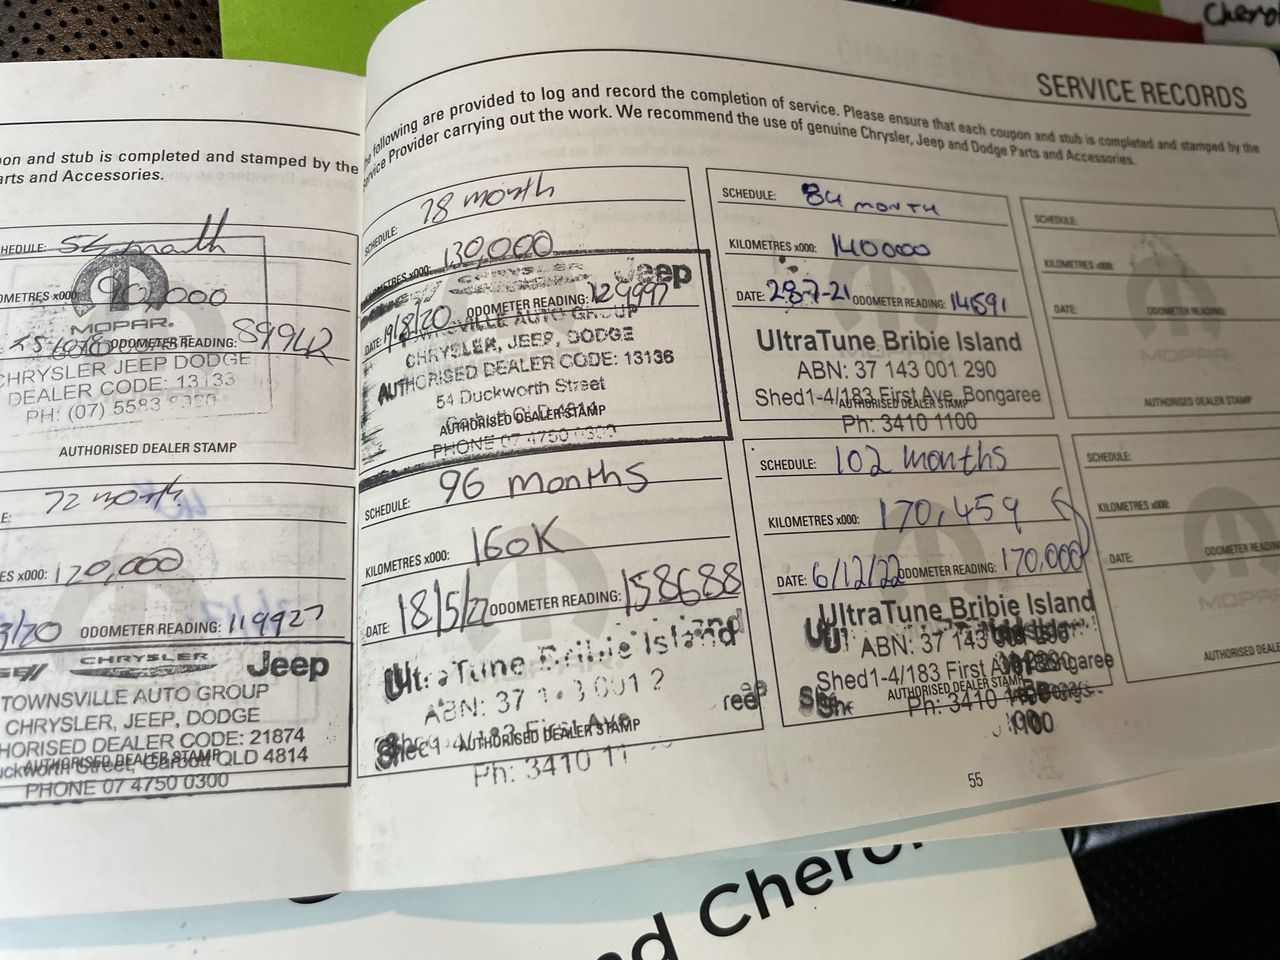 SERVICE RECORDS
on and stub is completed and stamped by the
arts and Accessories.
following are provided to log and record the completion of service. Please ensure that each coupon and stub is completed and stamped by the
Service Provider carrying out the work. We recommend the use of genuine Chrysler, Jeep and Dodge Parts and Accessories.
HEDULE: 54 month
OMETRES x000: 90,000
MOPAR.
ODOMETER READING: 89942
CHRYSLER JEEP DODGE
DEALER CODE: 13133
PH: (07) 5583
AUTHORISED DEALER STAMP
72 month
ES x000: 120,000
3/20 ODOMETER READING: 119927
CHRYSLER Jeep
TOWNSVILLE AUTO GROUP
CHRYSLER, JEEP, DODGE
HORISED DEALER CODE: 21874
uckworth Street, Garbutt QLD 4814
AUTHORISED DEALER STAMP
PHONE 07 4750 0300
SCHEDULE: 78 month
KILOMETRES x000: 130,000
CHRYSLER Jeep
DATE: 19/8/20 ODOMETER READING: 129997
TOWNSVILLE AUTO GROUP
CHRYSLER, JEEP, DODGE
AUTHORISED DEALER CODE: 13136
54 Duckworth Street
AUTHORISED DEALER STAMP
PHONE 07 4750 0300
SCHEDULE: 96 months
KILOMETRES x000: 160K
DATE: 18/5/22 ODOMETER READING: 158688
UltraTune Bribie Island
ABN: 37 1 3 001 2
AUTHORISED DEALER STAMP
Ph: 3410 11
SCHEDULE: 84 month
KILOMETRES x000: 140000
DATE: 28-7-21 ODOMETER READING: 14591
UltraTune Bribie Island
ABN: 37 143 001 290
Shed1-4/183 First Ave, Bongaree
AUTHORISED DEALER STAMP
Ph: 3410 1100
SCHEDULE: 102 months
KILOMETRES x000: 170,459
DATE: 6/12/22 ODOMETER READING: 170,000
UltraTune Bribie Island
ABN: 37 143
Shed1-4/183 First Bongaree
AUTHORISED DEALER STAMP
Ph: 3410
SCHEDULE:
KILOMETRES x000:
DATE: ODOMETER READING:
MOPAR
AUTHORISED DEALER STAMP
SCHEDULE:
KILOMETRES x000:
DATE: ODOMETER READING:
MOPAR
AUTHORISED DEALE
55
nd Chero
Chero